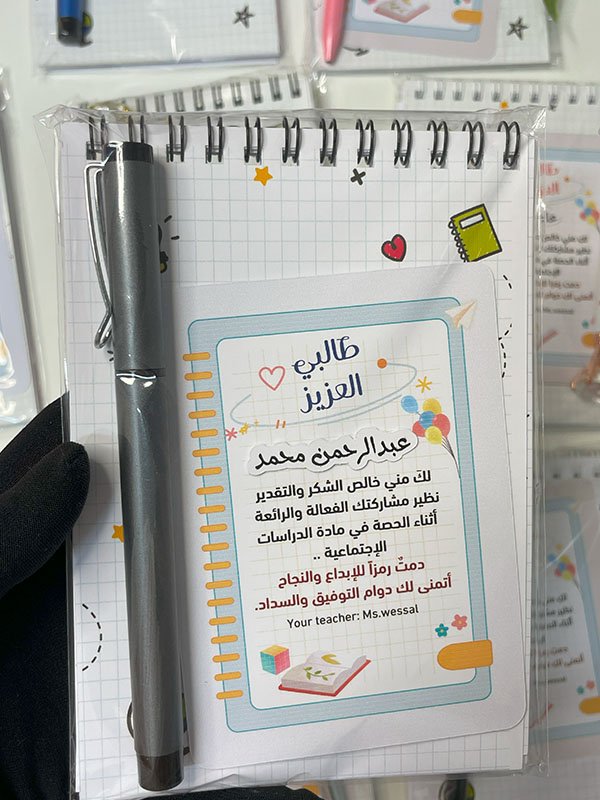 طالبي
العزيز
عبدالرحمن محمد
لكَ مني خالص الشكر والتقدير
نظير مشاركتك الفعالة والرائعة
أثناء الحصة في مادة الدراسات
الإجتماعية ..
دمتٌ رمزاً للإبداع والنجاح
أتمنى لك دوام التوفيق والسداد.
Your teacher: Ms.wessal